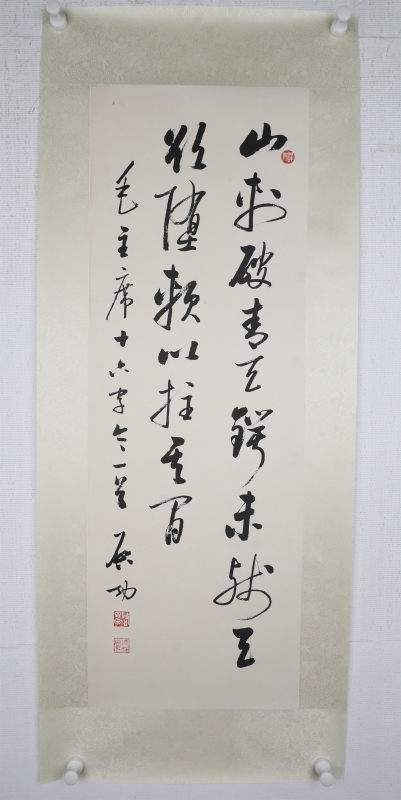 山刺破青天锷未残天
欲堕赖以拄其间
毛主席十六字令一首 启功